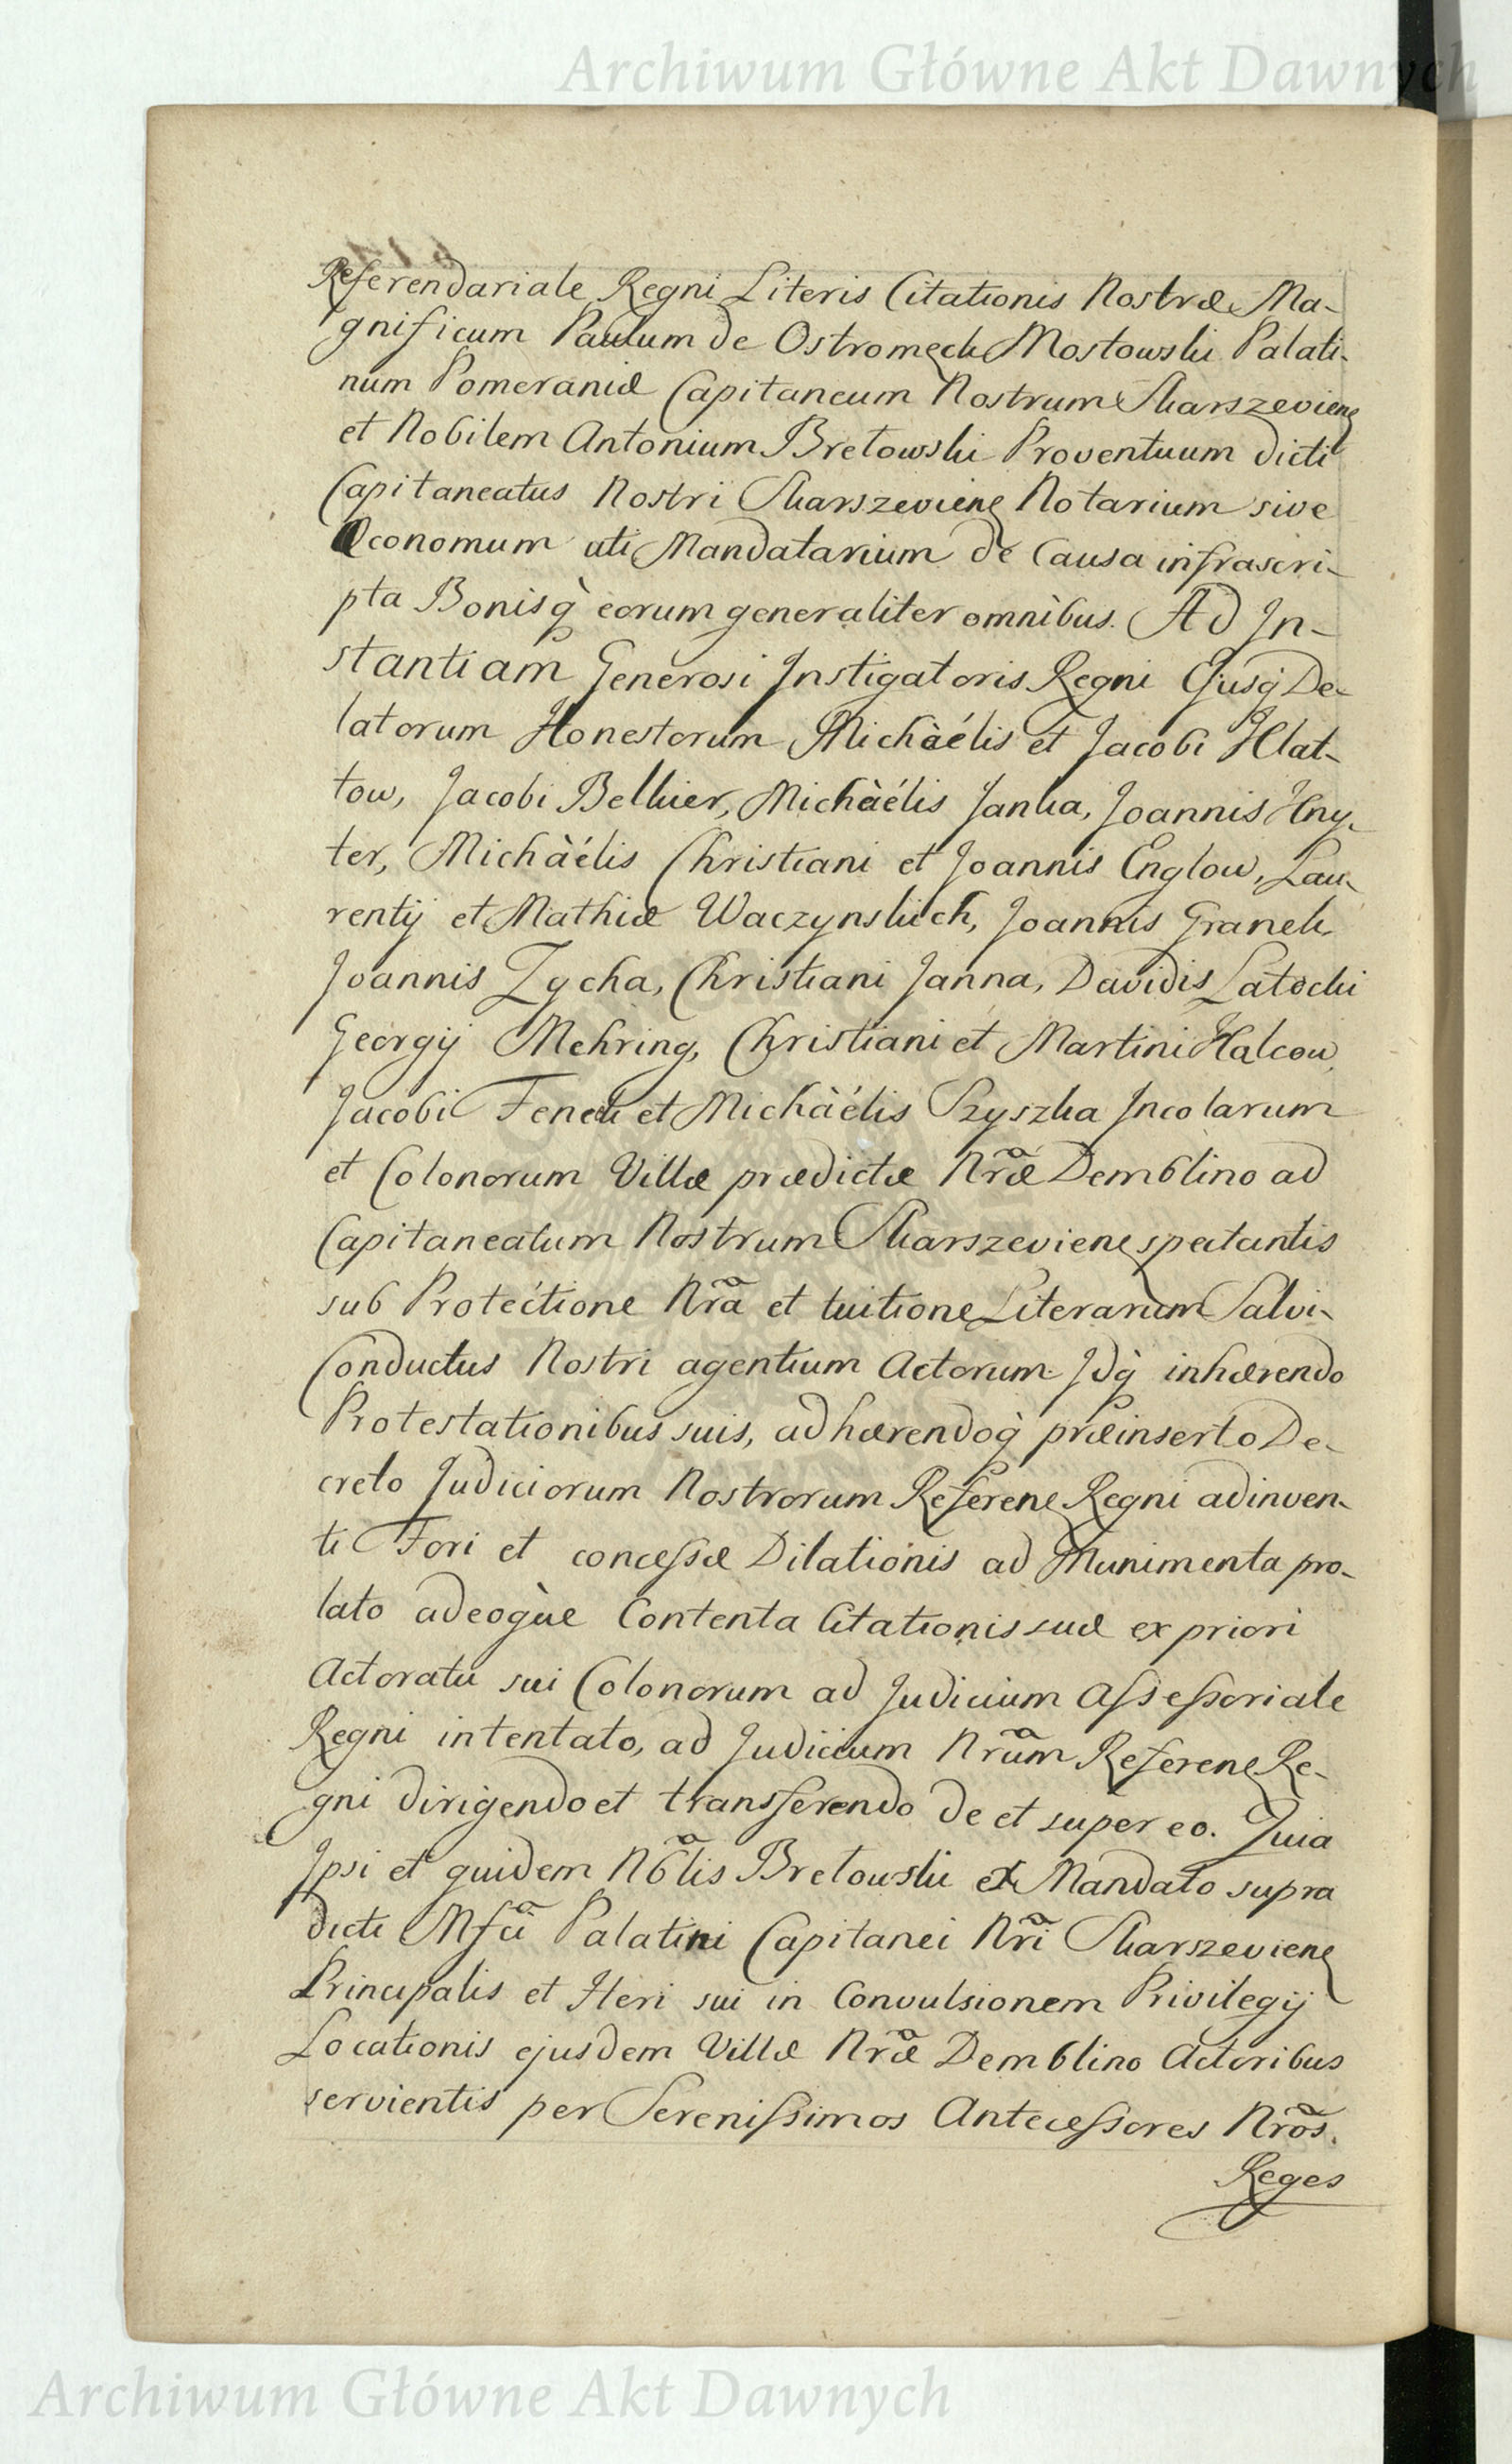 Archiwum Główne Akt Dawnych
Referendariale Regni Literis Citationis Nostræ Ma-
gnificum Paulum de Ostromęck Mostowski Palati-
num Pomeraniæ Capitaneum Nostrum Skarszevien
et Nobilem Antonium Bretowski Proventuum dicti
Capitaneatus Nostri Skarszevien Notarium sive
Œconomum uti Mandatarium de Causa infrascri-
pta Bonisq̀ eorum generaliter omnibus. Ad In-
stantiam Generosi Instigatoris Regni Ejusq̀ De-
latorum Honestorum Michàélis et Jacobi Klat-
tow, Jacobi Belkier, Michàélis Janka, Joannis Kny-
ter, Michàélis Christiani et Joannis Englow, Lau-
rentij et Mathiæ Waczynskich, Joannis Granek,
Joannis Zycha, Christiani Janna, Davidis Latocki
Georgij Mehring, Christiani et Martini Kalcow,
Jacobi Fenek et Michàélis Szyszka Incolarum
et Colonorum Villæ prædictæ Nr̃æ Demblino ad
Capitaneatum Nostrum Skarszevien spectantis
sub Protectione Nr̃a et tuitione Literarum Salvi-
Conductus Nostri agentium Actorum Idq̀ inhærendo
Protestationibus suis, adhærendoq̀ præinserto De-
creto Judiciorum Nostrorum Referen Regni adinven-
ti Fori et concessæ Dilationis ad Munimenta pro-
lato adeoq̀ue Contenta Citationis suæ ex priori
Actoratu sui Colonorum ad Judicium Assessoriale
Regni intentato, ad Judicium Nr̃um Referen Re-
gni dirigendo et transferendo de et super eo. Quia
Ipsi et quidem Nb̃lis Bretowski ex Mandato supra
dicti Mf̃ci Palatini Capitanei Nr̃i Skarszevien
Principalis et Heri sui in Convulsionem Privilegij
Locationis ejusdem Villæ Nr̃æ Demblino Actoribus
servientis per Serenissimos Antecessores Nr̃os.
Reges
Archiwum Główne Akt Dawnych